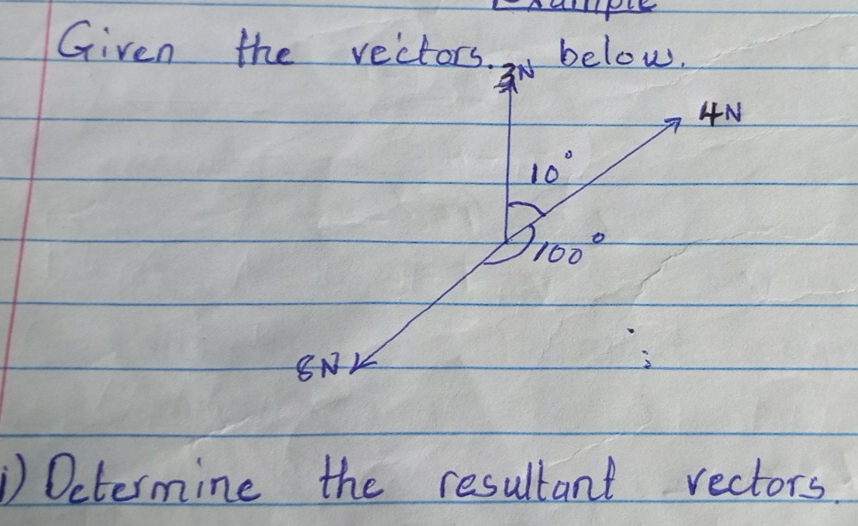 Example
Given the vectors. below.
3N
4N
10°
100°
8N
i) Determine the resultant vectors.